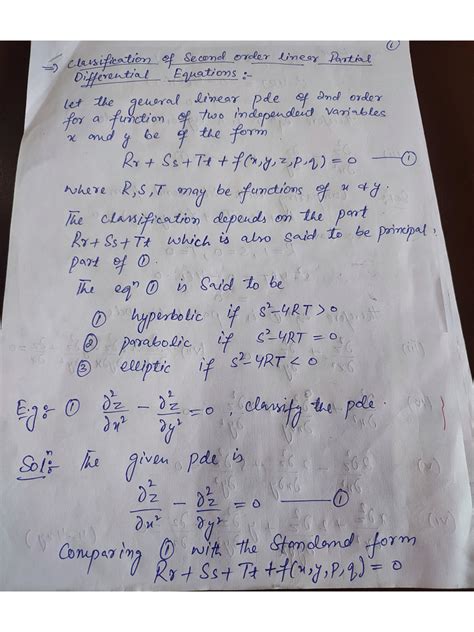 ①
⇒ Classification of Second order linear Partial
Differential Equations :-
Let the general linear pde of 2nd order
for a function of two independent variables
x and y be of the form
Rr + Ss + Tt + f(x,y,z,p,q) = 0 — ①
where R,S,T may be functions of x & y.
The classification depends on the part
Rr + Ss + Tt which is also said to be principal
part of ①.
The eqⁿ ① is said to be
① hyperbolic if S²-4RT > 0
② parabolic if S²-4RT = 0
③ elliptic if S²-4RT < 0
E.g:- ① ∂²z/∂x² - ∂²z/∂y² = 0, classify the pde.
Solⁿ:- The given pde is
∂²z/∂x² - ∂²z/∂y² = 0 — ①
Comparing ① with the Standard form
Rr + Ss + Tt + f(x,y,p,q) = 0